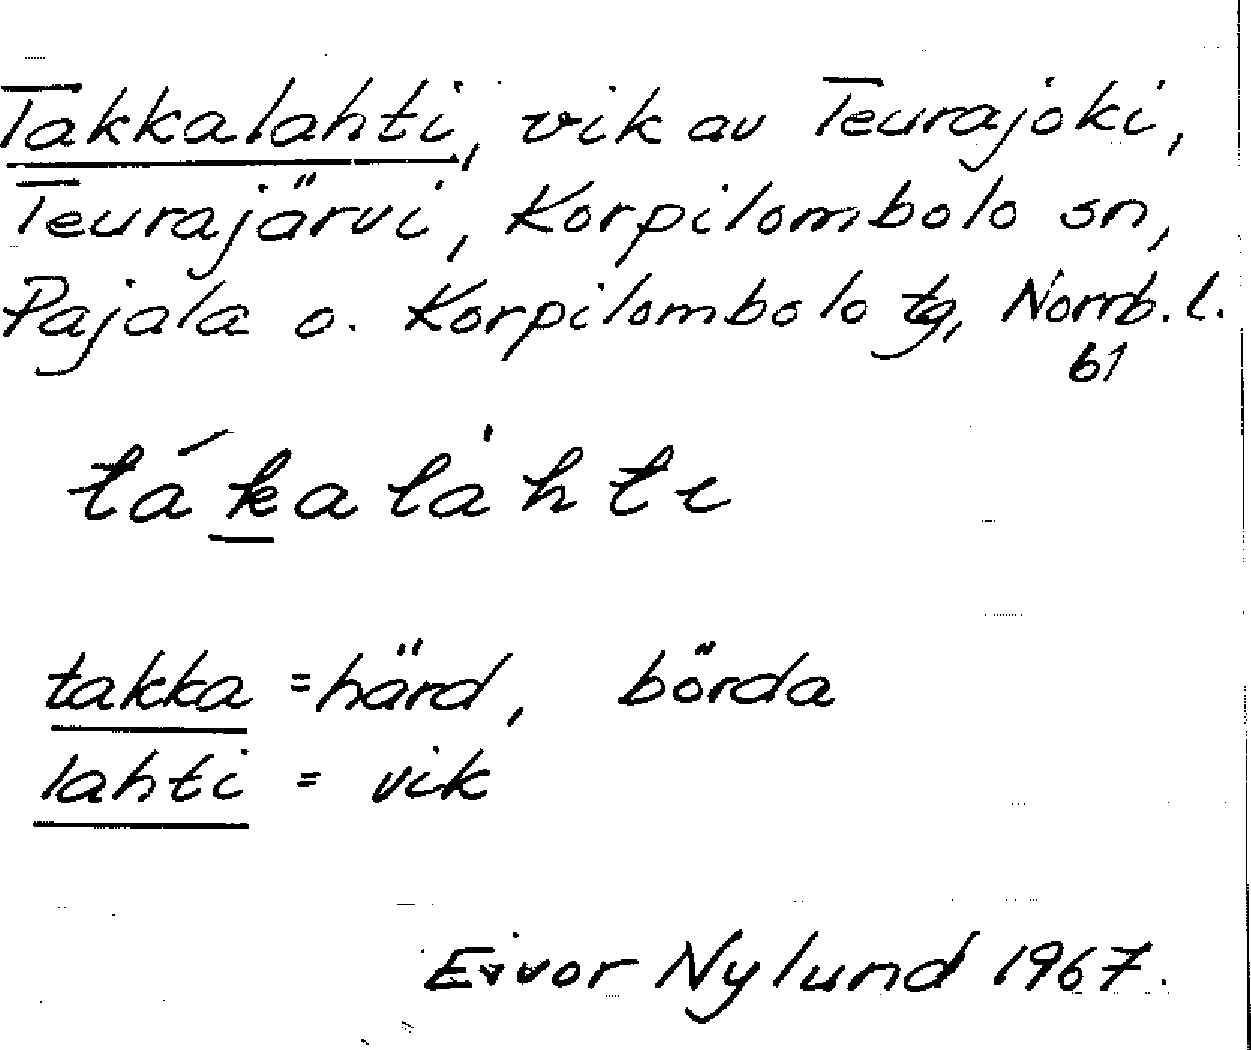 Takkalahti, vik av Teurajoki,
Teurajärvi, Korpilombolo sn,
Pajala o. Korpilombolo tg, Norrb. l.
61
tákalàhti
takka = härd, börda
lahti = vik
Eivor Nylund 1967.